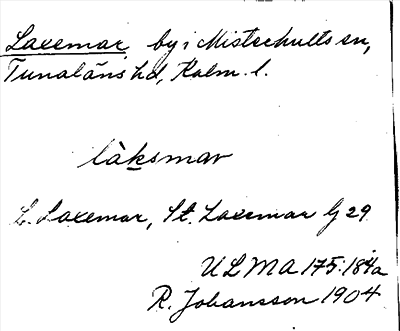 Laxemar, by i Misterhults sn,
Tunaläns hd, Kalm. l.
làksmar
L. Laxemar, St. Laxemar G 29
ULMA 175:184a
R. Johansson 1904